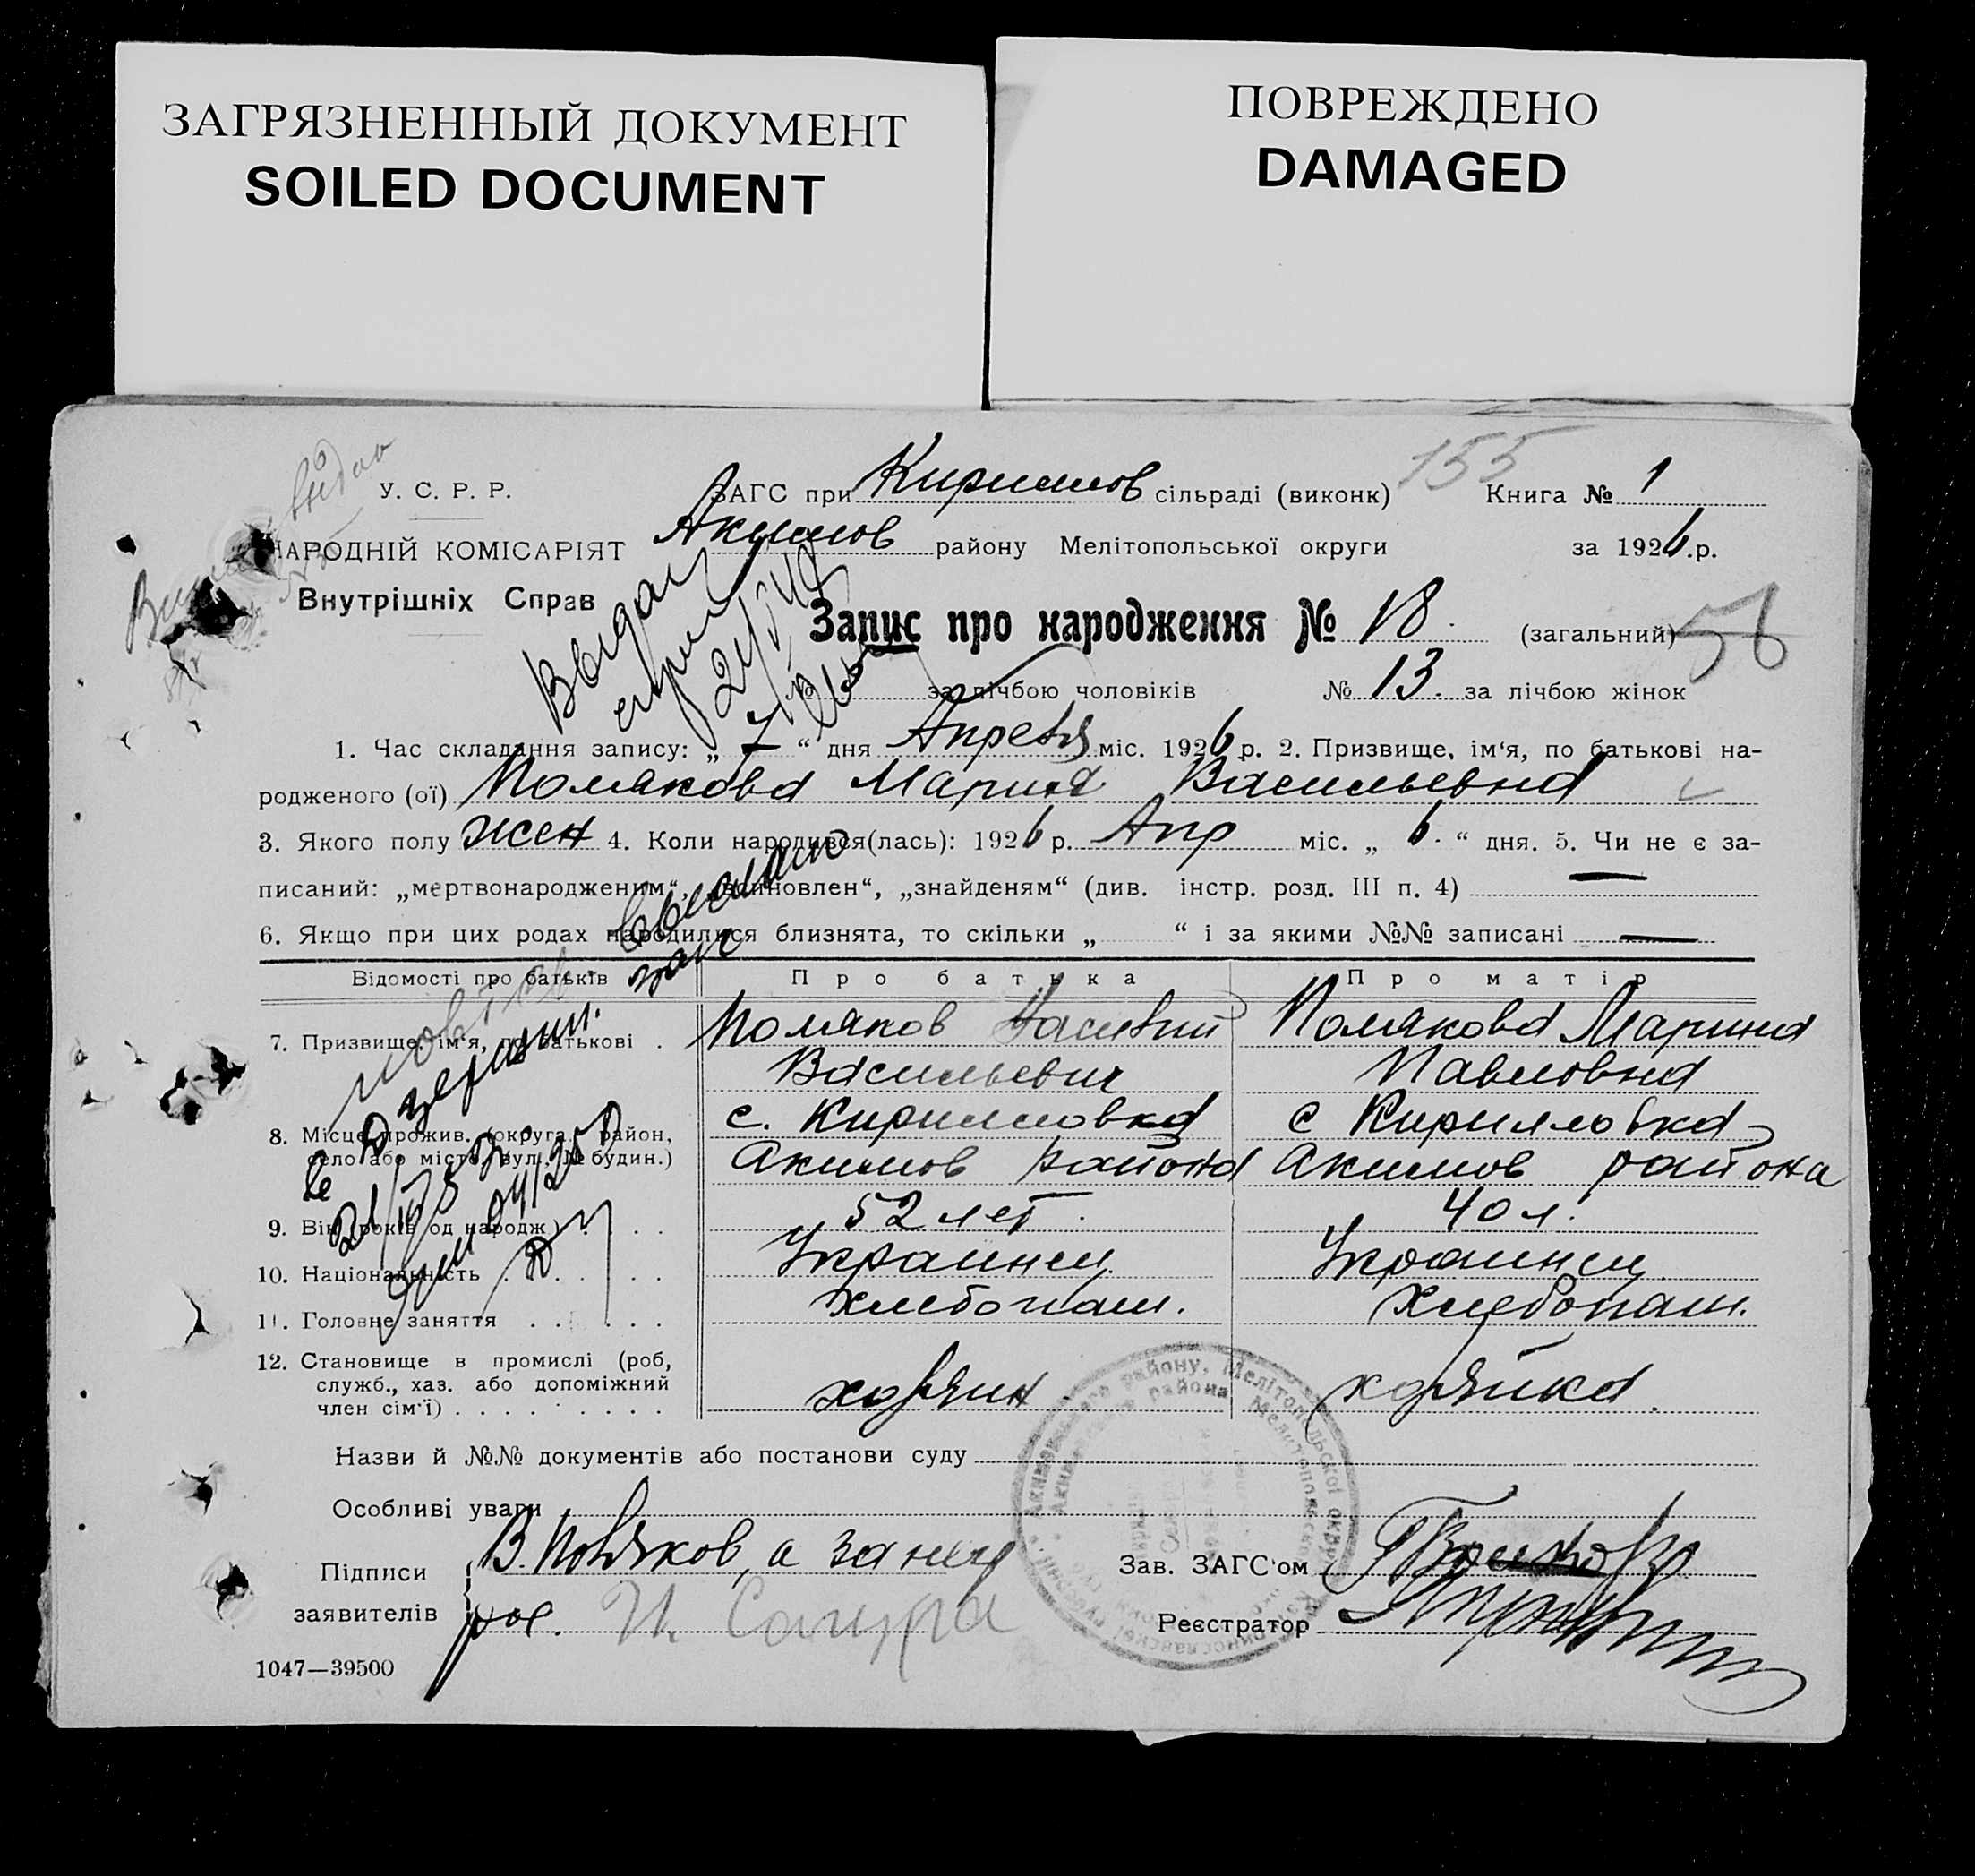 ЗАГРЯЗНЕННЫЙ ДОКУМЕНТ
SOILED DOCUMENT
ПОВРЕЖДЕНО
DAMAGED
155
У. С. Р. Р.
НАРОДНІЙ КОМІСАРІЯТ
Внутрішніх Справ
ЗАГС при Кириллов сільраді (виконк) Книга № 1
Акимов району Мелітопольської округи за 1926.р.
Запис про народження № 18. (загальний) 56
№ за лічбою чоловіків № 13. за лічбою жінок
1. Час складання запису: „ 7 “ дня Апреля міс. 1926 р. 2. Призвище, ім‘я, по батькові на-
родженого (ої) Полякова Мария Васильевна
3. Якого полу жен 4. Коли народився(лась): 1926 р. Апр міс. „ 6. “ дня. 5. Чи не є за-
писаний: „мертвонародженим“, „всиновлен“, „знайденям“ (див. інстр. розд. III п. 4) —
6. Якщо при цих родах народилися близнята, то скільки „ “ і за якими №№ записані —
Відомості про батьків Про батька Про матір
7. Призвище, ім‘я, по батькові . Поляков Василий Полякова Марина
Васильевич Павловна
8. Місце прожив. (округа, район, с. Кирилловка с Кирилловка
село або місто, вул., № будин.) Акимов района Акимов района
9. Вік (років од народж.) . . . . 52 лет. 40 л.
10. Національність . . . . . Украинец Украинец
11. Головне заняття . . . . . хлебопаш. хлебопаш.
12. Становище в промислі (роб,
служб., хаз. або допоміжний
член сім‘ї) . . . . . . . . . хозяин хозяйка.
Назви й №№ документів або постанови суду
Особливі уваги
Підписи
заявителів
В. Поляков, а за нег
рос. И. Сапура
Зав. ЗАГС‘ом
Реєстратор
1047—39500